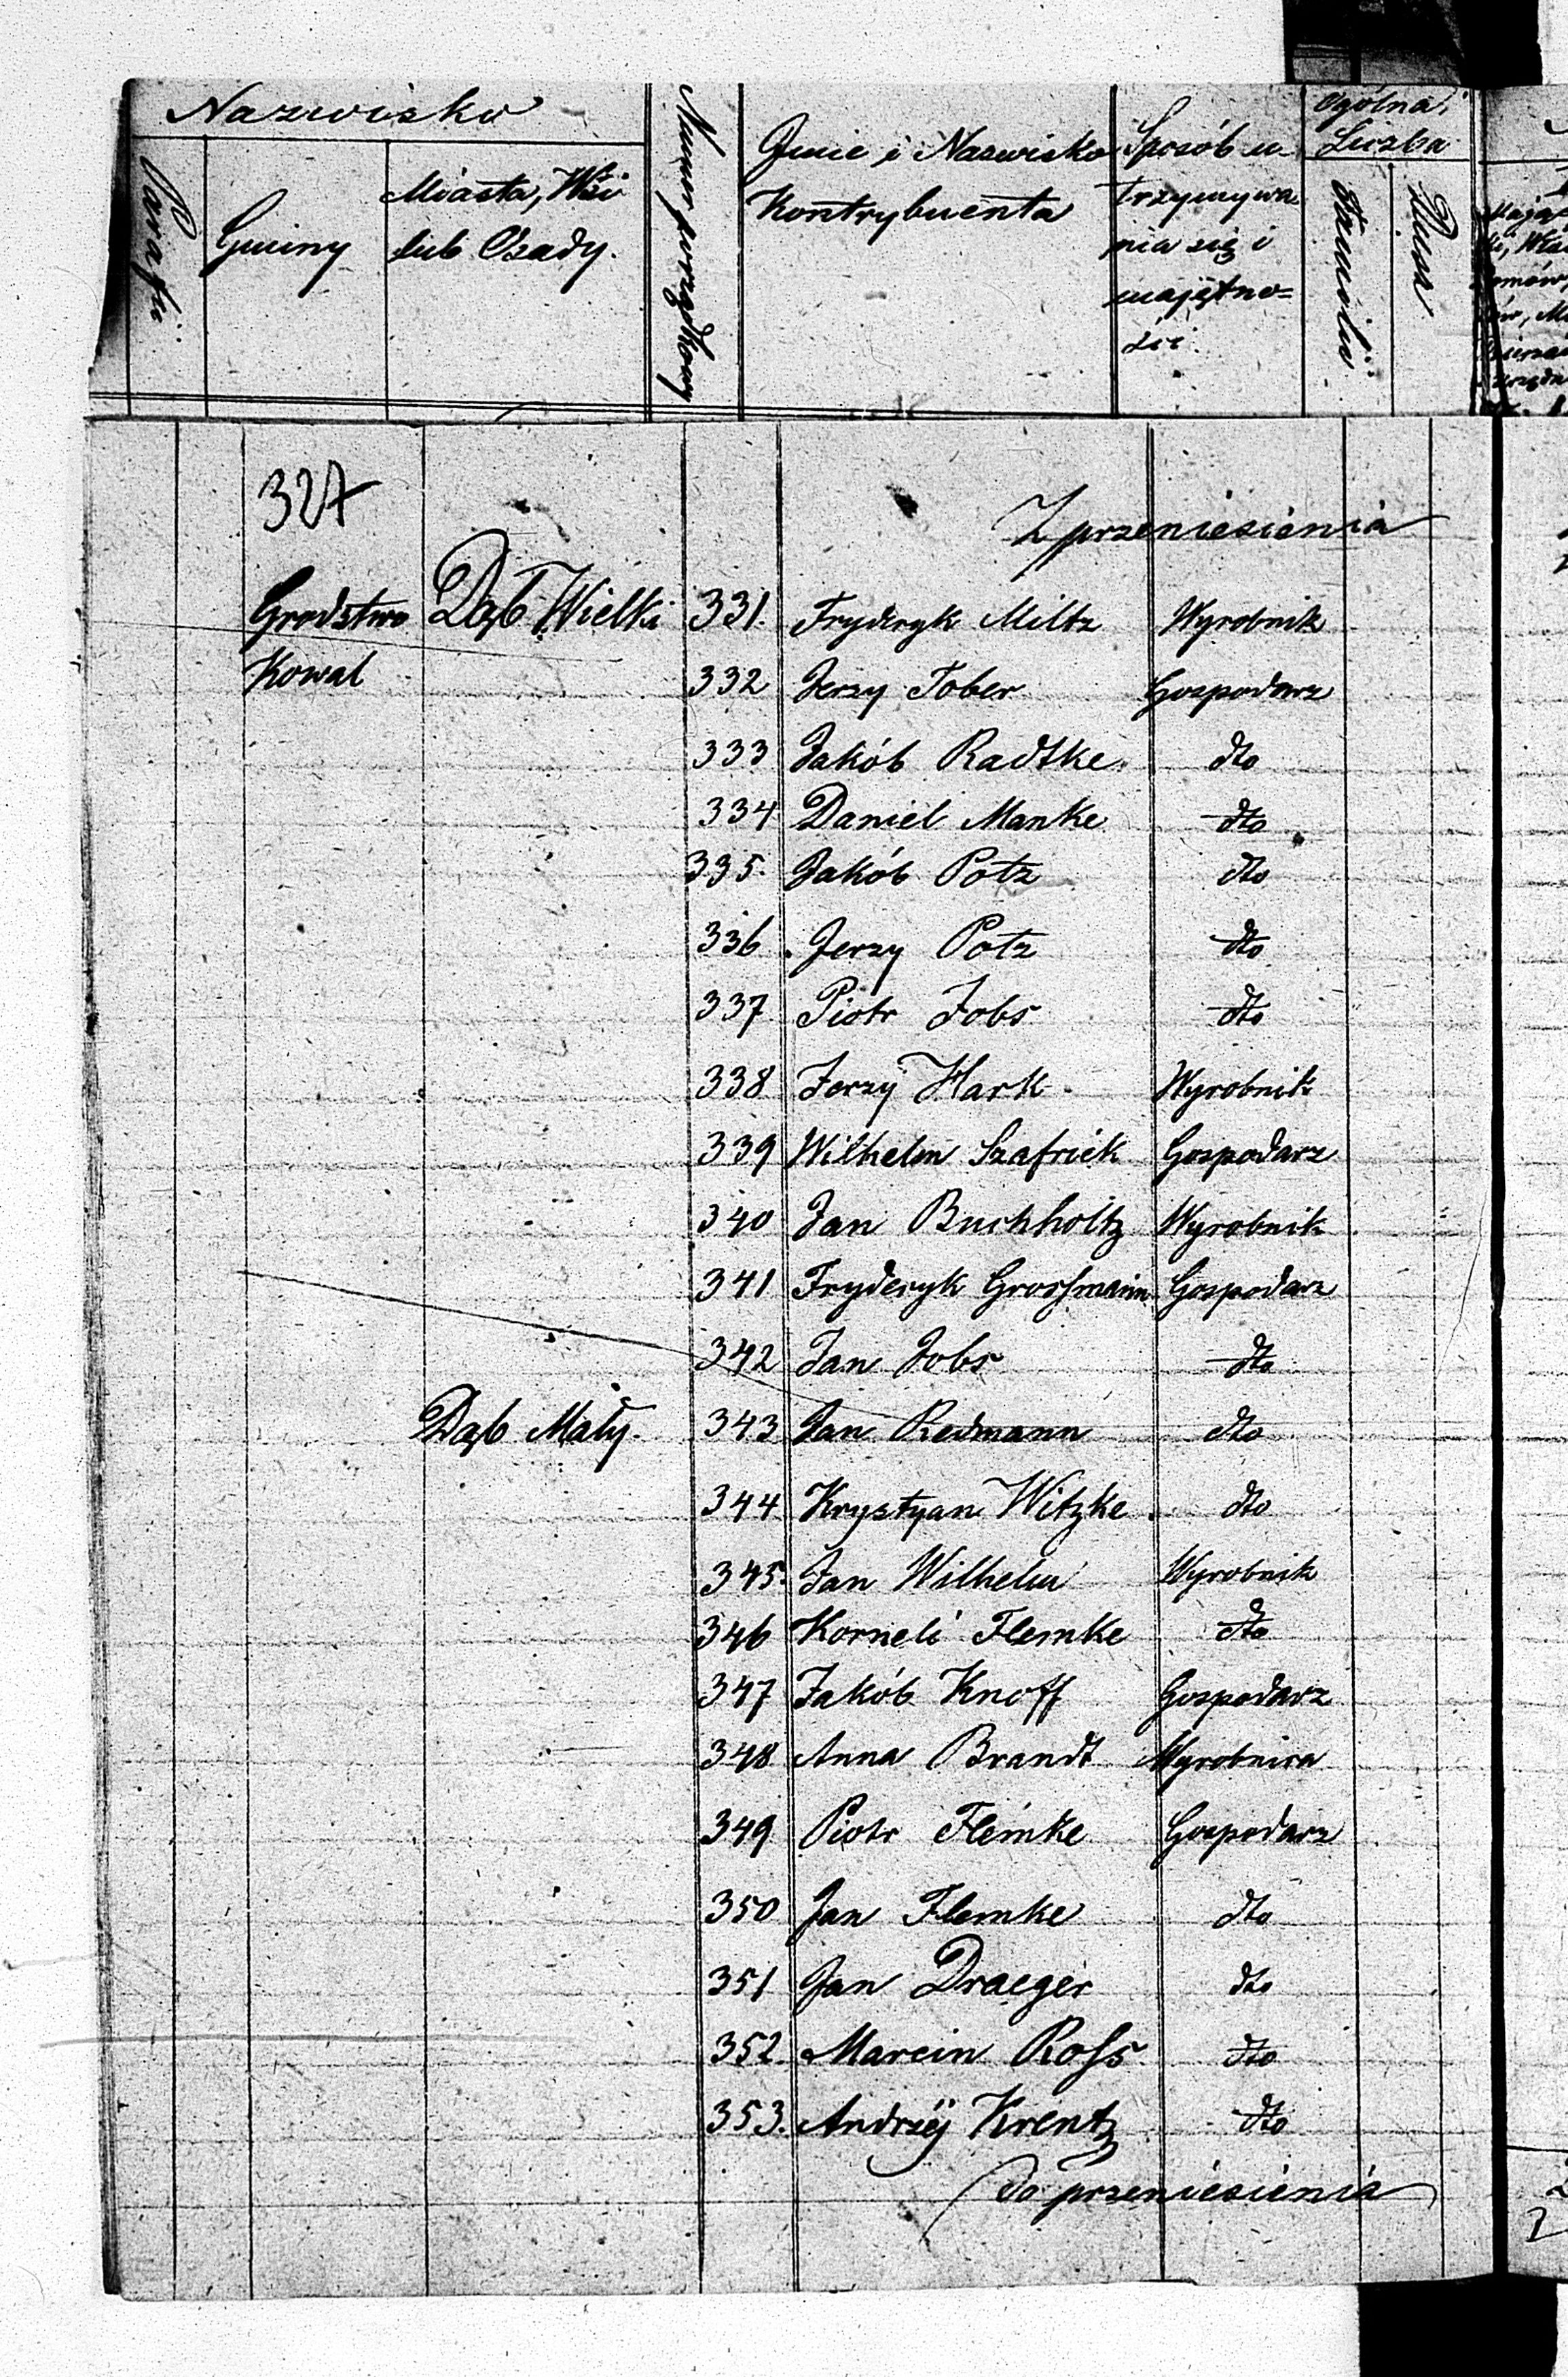 Nazwisko
Parafii
Gminy
Miasta, Wsi
lub Osady.
Numer porządkowy
Imie i Nazwisko
Kontrybuenta
Sposób u-
trzymywa
nia się i
majętno=
ści
Ogólna
Liczba
Familii
Dusz
327
Z przeniesienia
Grodztwo Dąb Wielki 331. Fryderyk Miltz Wyrobnik
Kowal 332 Jerzy Tober Gospodarz
333 Jakób Radtke dto
334 Daniel Manke dto
335. Jakób Potz dto
336 Jerzy Potz dto
337 Piotr Jobs dto
338 Jerzy Hark Wyrobnik
339 Wilhelm Szafriek Gospodarz
340 Jan Buchholtz Wyrobnik
341 Fryderyk Grossmann Gospodarz
342 Jan Jobs dto
Dąb Mały. 343 Jan Redmann dto
344 Krystyan Witzke dto
345. Jan Wilhelm Wyrobnik
346 Korneli Flemke dto
347 Jakób Knoff Gospodarz
348 Anna Brandt Wyrobnica
349 Piotr Flemke Gospodarz
350 Jan Flemke dto
351 Jan Draeger dto
352 Marcin Ross dto
353. Andrzéj Krentz dto
Do przeniesienia